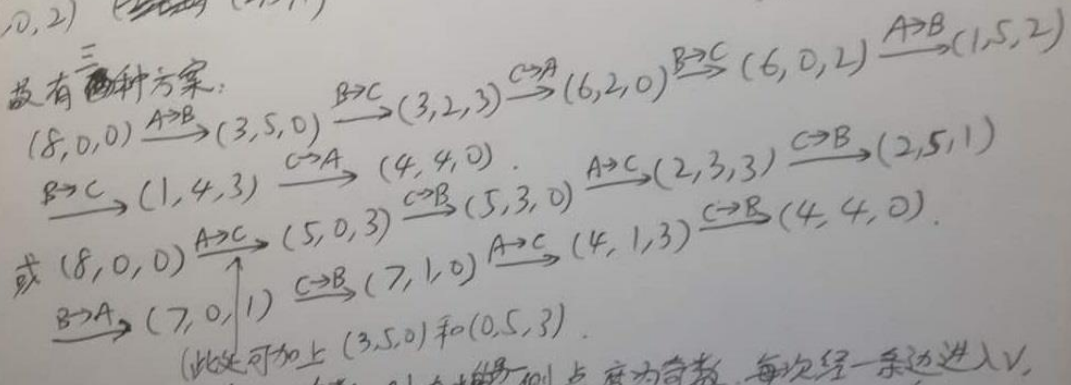 ,0,2)
故有三种方案:
(8,0,0) A→B→ (3,5,0) B→C→ (3,2,3) C→A→ (6,2,0) B→C→ (6,0,2) A→B→ (1,5,2)
B→C→ (1,4,3) C→A→ (4,4,0).
或 (8,0,0) A→C→ (5,0,3) C→B→ (5,3,0) A→C→ (2,3,3) C→B→ (2,5,1)
B→A→ (7,0,1) C→B→ (7,1,0) A→C→ (4,1,3) C→B→ (4,4,0).
(此处可加上 (3,5,0) 和 (0,5,3).
点度为奇数, 每次经一条边进入V,